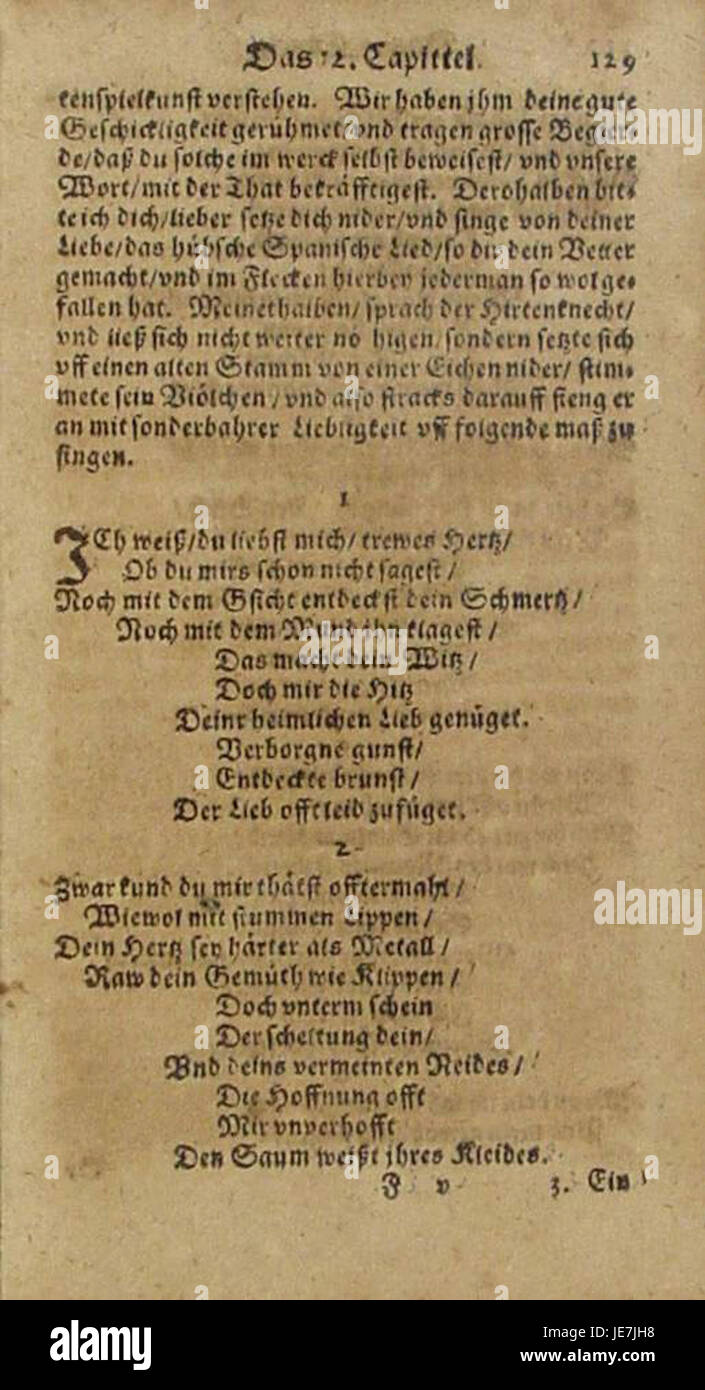 Das 12. Capittel. 129
tenspielkunst verstehen. Wir haben jhm deine gute
Geschickligkeit gerühmet/vnd tragen grosse Begier-
de/daß du solche im werck selbst beweisest/ vnd vnsere
Wort/mit der That bekräfftigest. Derohalben bit-
te ich dich/lieber setze dich nider/vnd singe von deiner
Liebe/das hübsche Spanische Lied/so dir dein Vetter
gemacht/vnd im Flecken hierbey jederman so wol ge-
fallen hat. Meinethalben/ sprach der Hirtenknecht/
vnd ließ sich nicht weiter nöhigen/sondern setzte sich
vff einen alten Stamm von einer Eichen nider/ stim-
mete sein Viölchen/vnd also stracks darauff fieng er
an mit sonderbahrer Liebligkeit vff folgende maß zu
singen.
1
ICh weiß/du liebst mich/ trewes Hertz/
Ob du mirs schon nicht sagest/
Noch mit dem Gsicht entdeckst dein Schmertz/
Noch mit dem Mund klagest/
Das dein Witz/
Doch mir die Hitz
Deinr heimlichen Lieb genüget.
Verborgne gunst/
Entdeckte brunst/
Der Lieb offt leid zufüget.
2
Zwar kund du mir thätst offtermahl/
Wiewol mit stummen Lippen/
Dein Hertz sey härter als Metall/
Raw dein Gemüth wie Klippen/
Doch vnterm schein
Der scheltung dein/
Vnd deins vermeinten Neides/
Die Hoffnung offt
Mir vnverhofft
Den Saum weißt jhres Kleides.
J v 3. Ein
alamy
Image ID: JE7JH8
www.alamy.com